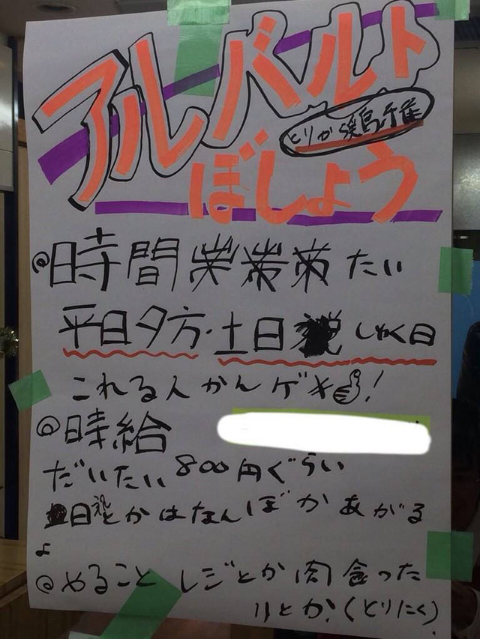 アルバルト
ぼしょう
@時間 たい
平日夕方・土日 しゅく日
これる人かんゲキ!
@時給
だいたい800円ぐらい
日祝とかはなんぼかあがる
よ
@やること レジとか肉食った
りとか。(とりにく)